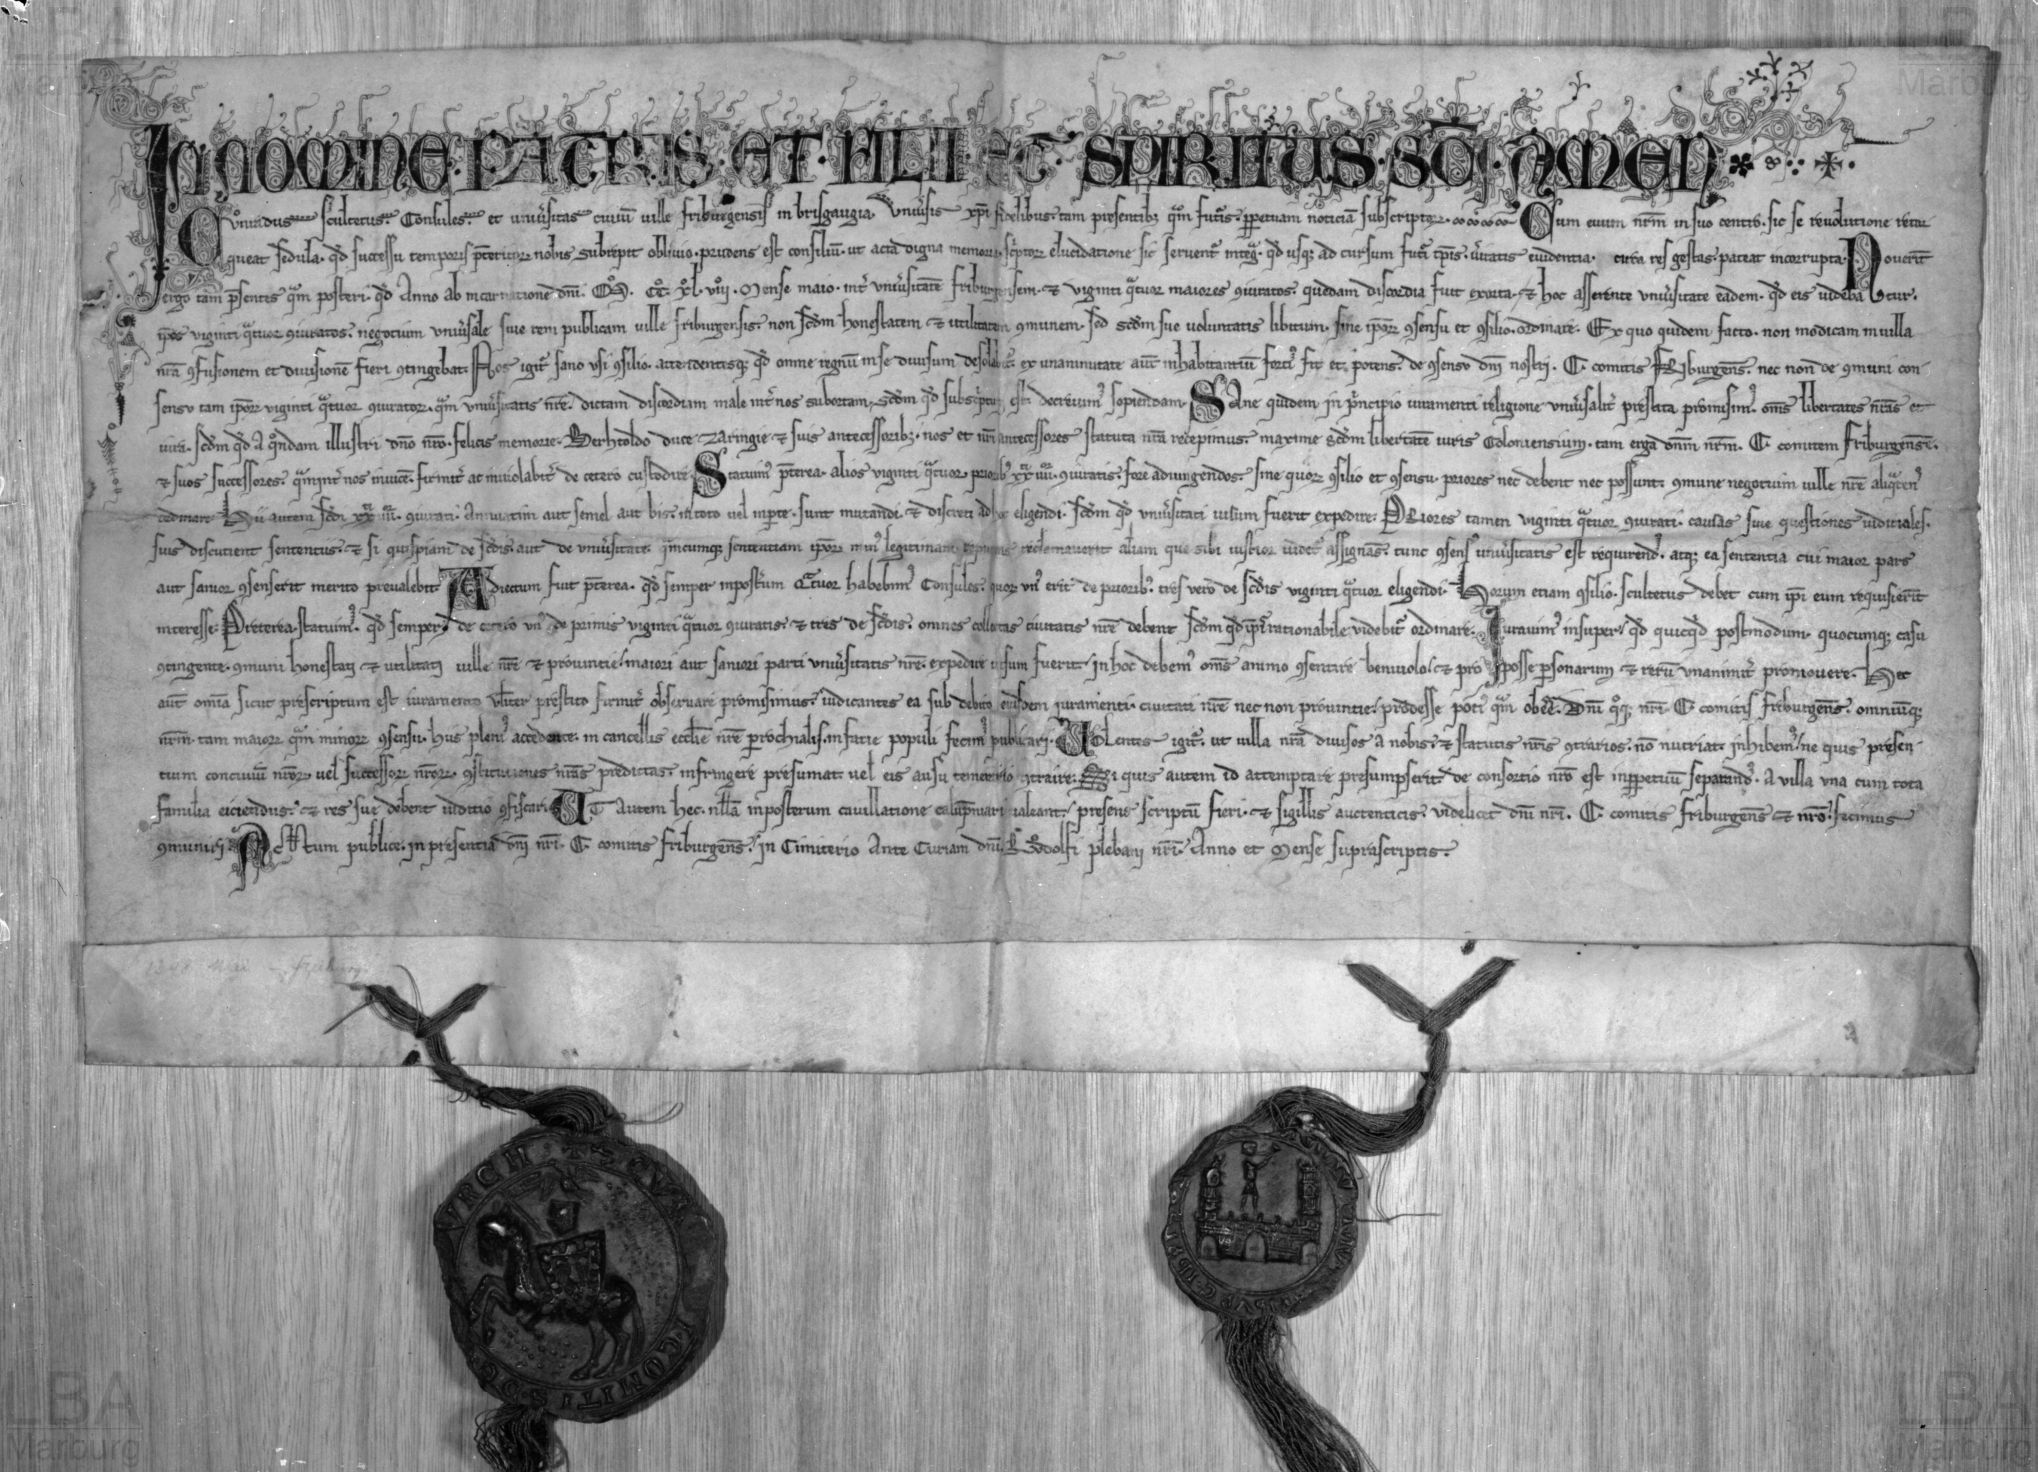 IN NOMINE PATRIS ET FILII ET SPIRITUS SCI AMEN
Cvnradus scultetus. Consules. et univsitas civiū ville friburgensis in brisgaugia. Univsis xpi fidelibus. tam presentibz qm futis. ppetuam noticiā subscriptor. Cum evum nrm in suo centro. sic se revolutione retor
queat sedula. qd successu temporis pteritor nobis subrepit oblivio. prudens est consiliū. ut acta digna memoria. sciptor elucidatione sic serventr integ. qd usqz ad cursum futi tpis. vitatis evidentia. circa res gestas. pateat incorrupta. Noverit
ergo tam psentes qm posteri. qd Anno ab incarnatione dni. M. CC. XL. VIII. Mense maio. int univsitatē friburgensem. et viginti qtuor maiores 9iuratos. quedam discordia fuit exorta. et hoc asserente univsitate eadem. qd eis videbantur.
ipos viginti qtuor 9iuratos. negotium univsale sive rem publicam ville friburgensis. non scdm honestatem et utilitatem 9munem. sed scdm sue voluntatis libitum. sine ipor 9sensu et 9silio. ordinare. Ex quo quidem facto. non modicam in villa
nra 9fusionem et divisionē fieri 9tingebat. Nos igit sano usi 9silio. attendentesqz qd omne regnū in se divisum desolabit. ex unanimitate aut inhabitantiū forti9 fit et potens. de 9sensu dni nostri. C. comitis Friburgens. nec non de 9muni con
sensu tam ipor viginti qtuor 9iurator. qm univsitatis nre. dictam discordiam male int nos subortam. scdm qd subscriptū est. decrevim9 sopiendam. Sane quidem in pncipio iuramenti religione univsalit prestita promisim9. oms libertates nras et
iura. scdm qd a qondam illustri dno nro. felicis memorie. Berhtoldo duce zaringie et suis antecessoribz. nos et nri antecessores statuta nra recepimus. maxime scdm libertatē iuris Coloniensium. tam erga dnm nrm. C. comitem friburgens.
et suos successores. qm int nos invicē. firmit ac inviolabilit de cetero custodire. Statuim9 pterea. alios viginti qtuor. priorib9 xx iiii. 9iuratis. fore adiungendos. sine quor 9silio et 9sensu. priores nec debent nec possunt. 9mune negotium ville nre aliqten9
ordinare. Hii autem scdi xx iiii. 9iurati. annuatim aut semel aut bis. in toto vel in parte. sunt mutandi. et discreti ad hoc eligendi. scdm qd univsitati visum fuerit expedire. Priores tamen viginti qtuor 9iurati. causas sive questiones iudiciales.
suis discutient sententiis. et si quispiam de scdis. aut de univsitate. qmcumqz sententiam ipor min9 legitimam reclamaverit aliam que sibi iustior videt assignās. tunc 9sens9 univsitatis est requirend9. atqz ea sententia cui maior pars
aut sanior 9senserit merito prevalebit. Adiectum fuit pterea. qd semper inposterum qtuor habebim9 Consules. quor un9 erit de priorib9. tres vero de scdis viginti qtuor eligendi. Horum etiam 9silio. scultetus debet cum ipi eum requisierit
interesse. Preterea. statuim9. qd semper de cetero un9 de primis viginti qtuor 9iuratis. et tres de scdis. omnes collectas civitatis nre debent scdm qd ipis rationabile videbit ordinare. Iuravim9 insuper qd quicqd postmodum. quocumqz casu
9tingente. 9muni honestati et utilitati ville nre et provincie. maiori aut saniori parti univsitatis nre. expedire visum fuerit. in hoc debem9 oms animo 9sentire benivolo. et pro posse psonarum et rerū unanimit promovere. Hec
aut omia sicut prescriptum est iuramento prestito firmit observari promisimus. iudicantes ea sub debito eiusdem iuramenti. civitati nre nec non provintie. prodesse poti9 qm obesse. Dni qoqz nri. C. comitis friburgens. omniūqz
nrm. tam maior qm minor 9sensu. huic pleni9 accedente. in cancellis ecclie nre prochialis. in facie populi fecim9 publicari. Volentes igit. ut villa nra divisos a nobis. et statutis nris 9trarios. nō nutriat. inhibem9. ne quis presen
tium concivium nror. vel successor nror. 9stitutiones nras predictas. infringere presumat. vel eis ausu temerario 9traire. Si quis autem id attemptare presumpserit. de consortio nro est inppetuū separand9. A villa una cum tota
familia eiciendus. et res sue debent iudicio 9fiscari. UT autem hec. nlla inposterum cavillatione calūpniari valeant. presens scriptū fieri. et sigillis auctenticis. videlicet dni nri. C. comitis friburgens et nro. fecimus
9muniri. Actum publice. in presentia dni nri. C. comitis friburgens. in Cimiterio Ante Curiam dni Rodolfi plebani nri. Anno et Mense suprascriptis.
COMITIS
LBA
Marburg